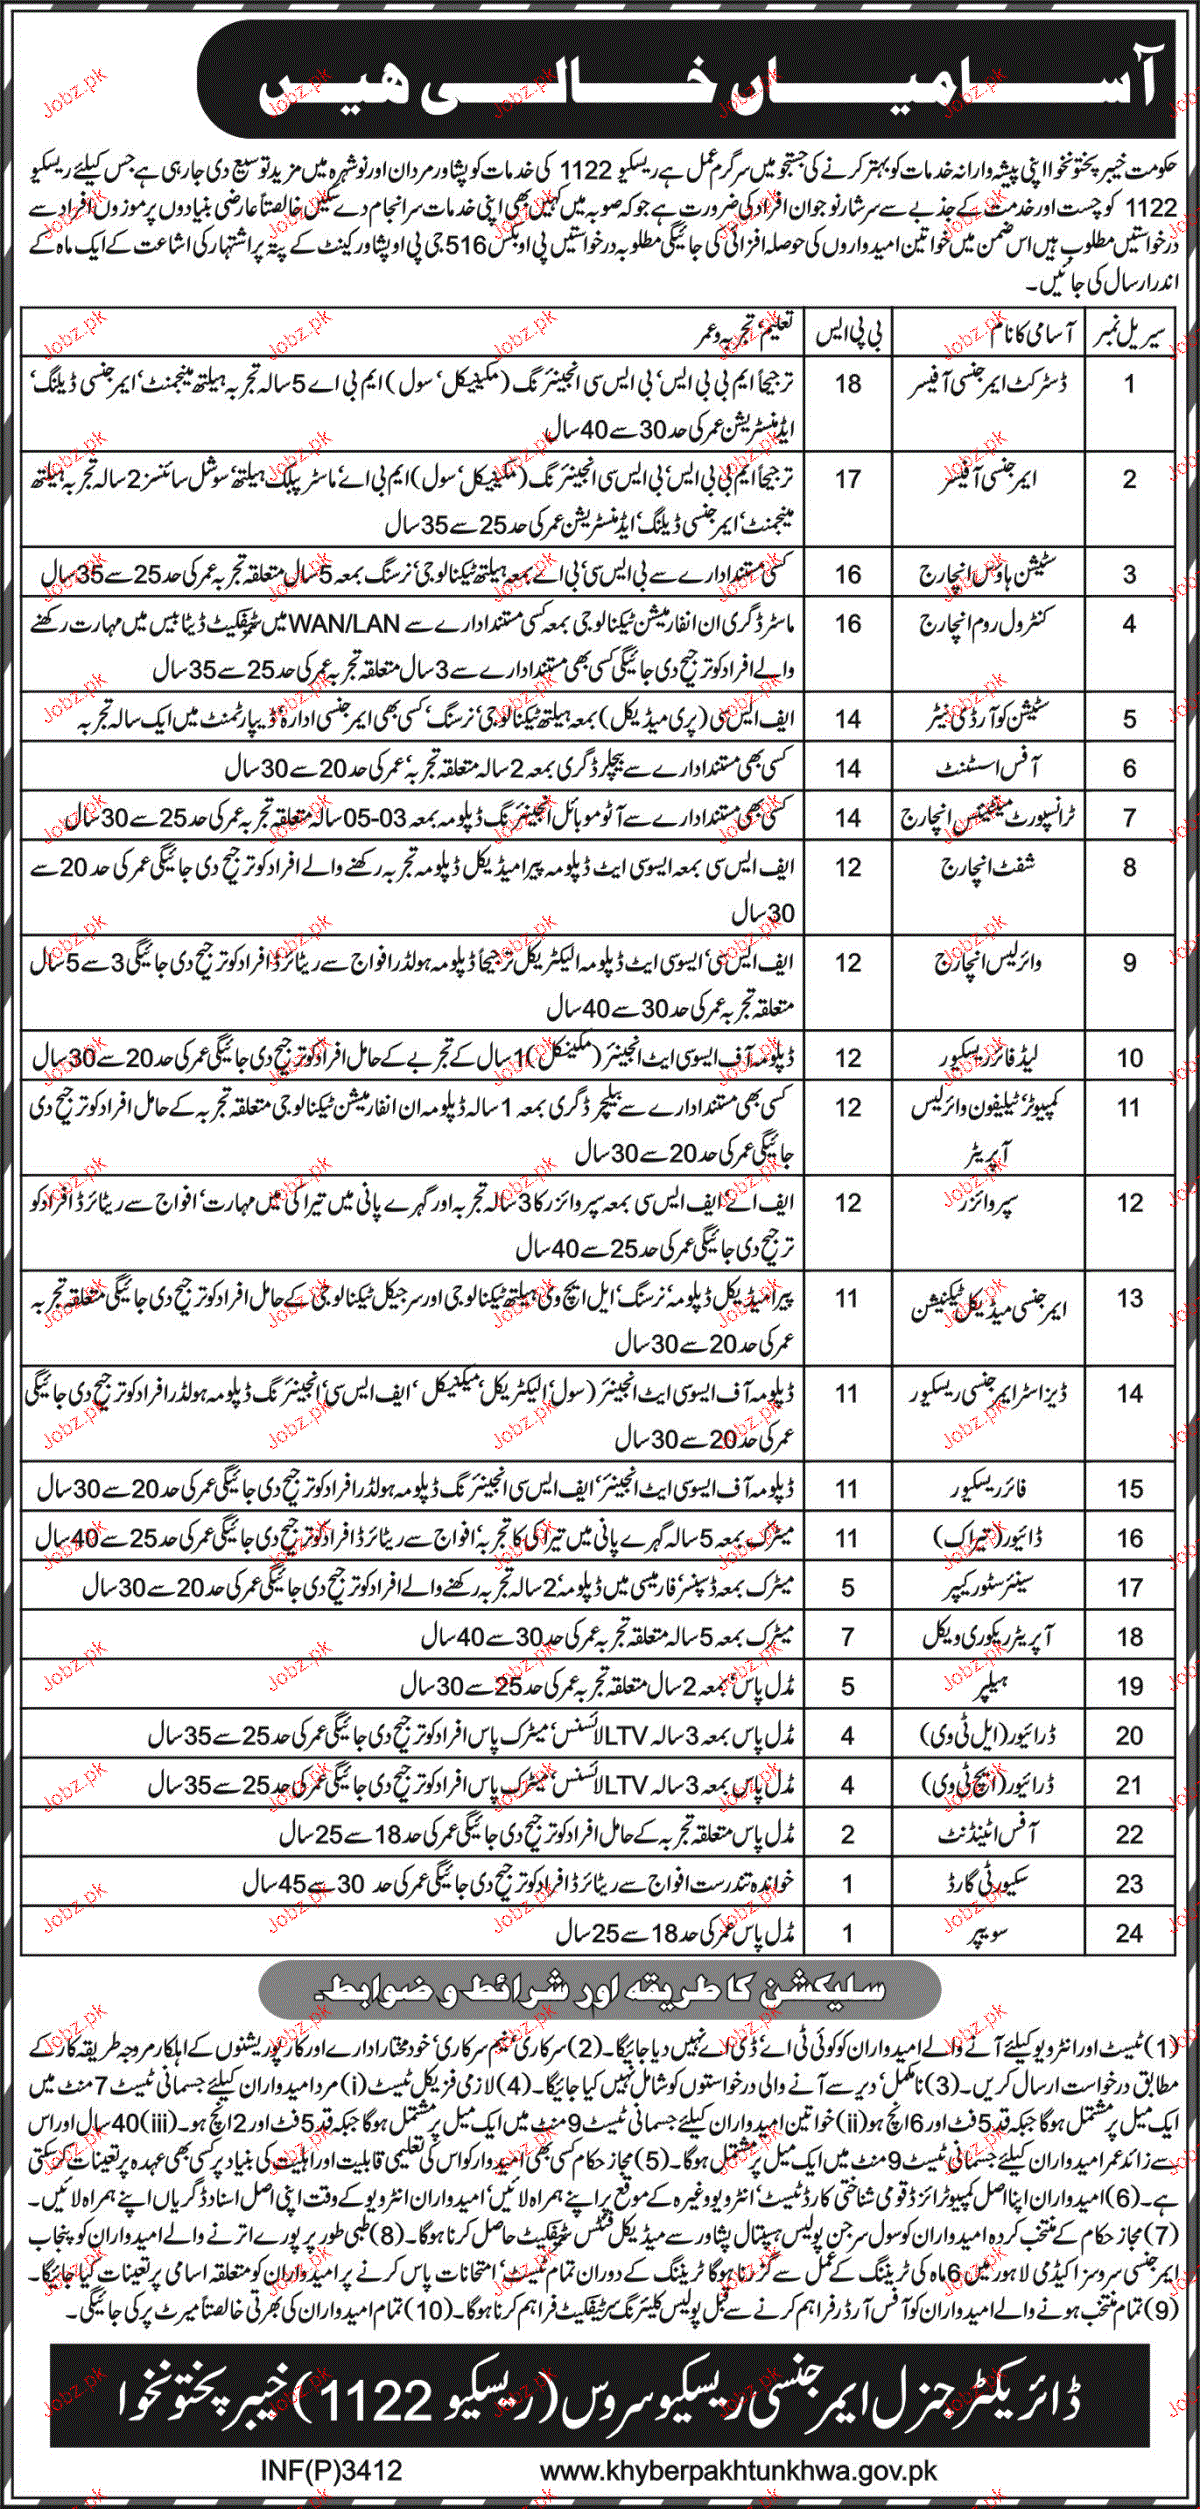 آسامیاں خالی ھیں
حکومت خیبر پختونخوا اپنی پیشہ وارانہ خدمات کو بہتر کرنے کی جستجو میں سرگرم عمل ہے ریسکیو 1122 کی خدمات کو پشاور مردان اور نوشہرہ میں مزید توسیع دی جا رہی ہے جس کیلئے ریسکیو
1122 کو چست اور خدمت کے جذبے سے سرشار نوجوان افراد کی ضرورت ہے جو کہ صوبہ میں کہیں بھی اپنی خدمات سرانجام دے سکیں خالصتاً عارضی بنیادوں پر موزوں افراد سے
درخواستیں مطلوب ہیں اس ضمن میں خواتین امیدواروں کی حوصلہ افزائی کی جائیگی مطلوبہ درخواستیں پی او بکس 516 جی پی او پشاور کینٹ کے پتہ پر اشتہار کی اشاعت کے ایک ماہ کے
اندر ارسال کی جائیں۔
سیریل نمبر آسامی کا نام بی پی ایس تعلیم' تجربہ و عمر
1 ڈسٹرکٹ ایمرجنسی آفیسر 18 ترجیحاً ایم بی بی ایس' بی ایس سی انجینئرنگ (مکینیکل' سول) ایم بی اے 5 سالہ تجربہ ہیلتھ مینجمنٹ' ایمرجنسی ڈیلنگ'
ایڈمنسٹریشن عمر کی حد 30 سے 40 سال
2 ایمرجنسی آفیسر 17 ترجیحاً ایم بی بی ایس' بی ایس سی انجینئرنگ (مکینیکل' سول) ایم بی اے' ماسٹر پبلک ہیلتھ' سوشل سائنسز 2 سالہ تجربہ ہیلتھ
مینجمنٹ' ایمرجنسی ڈیلنگ' ایڈمنسٹریشن عمر کی حد 25 سے 35 سال
3 سٹیشن ہاؤس انچارج 16 کسی مستند ادارے سے بی ایس سی' بی اے بمعہ ہیلتھ ٹیکنالوجی' نرسنگ بمعہ 5 سال متعلقہ تجربہ عمر کی حد 25 سے 35 سال
4 کنٹرول روم انچارج 16 ماسٹر ڈگری ان انفارمیشن ٹیکنالوجی بمعہ کسی مستند ادارے سے WAN/LAN میں سرٹیفکیٹ ڈیٹا بیس میں مہارت رکھنے
والے افراد کو ترجیح دی جائیگی کسی بھی مستند ادارے سے 3 سال متعلقہ تجربہ عمر کی حد 25 سے 35 سال
5 سٹیشن کوآرڈی نیٹر 14 ایف ایس سی (پری میڈیکل) بمعہ ہیلتھ ٹیکنالوجی' نرسنگ' کسی بھی ایمرجنسی ادارہ' ڈیپارٹمنٹ میں ایک سالہ تجربہ
6 آفس اسسٹنٹ 14 کسی بھی مستند ادارے سے بیچلر ڈگری بمعہ 2 سالہ متعلقہ تجربہ' عمر کی حد 20 سے 30 سال
7 ٹرانسپورٹ مینٹیننس انچارج 14 کسی بھی مستند ادارے سے آٹو موبائل انجینئرنگ ڈپلومہ بمعہ 03-05 سالہ متعلقہ تجربہ عمر کی حد 25 سے 30 سال
8 شفٹ انچارج 12 ایف ایس سی بمعہ ایسوسی ایٹ ڈپلومہ پیرا میڈیکل ڈپلومہ تجربہ رکھنے والے افراد کو ترجیح دی جائیگی عمر کی حد 20 سے
30 سال
9 وائرلیس انچارج 12 ایف ایس سی' ایسوسی ایٹ ڈپلومہ الیکٹریکل ترجیحاً ڈپلومہ ہولڈر افواج سے ریٹائرڈ افراد کو ترجیح دی جائیگی 3 سے 5 سال
متعلقہ تجربہ عمر کی حد 30 سے 40 سال
10 لیڈ فائر ریسکیور 12 ڈپلومہ آف ایسوسی ایٹ انجینئر (مکینیکل) 1 سال کے تجربے کے حامل افراد کو ترجیح دی جائیگی عمر کی حد 20 سے 30 سال
11 کمپیوٹر' ٹیلیفون وائرلیس 12 کسی بھی مستند ادارے سے بیچلر ڈگری بمعہ 1 سالہ ڈپلومہ ان انفارمیشن ٹیکنالوجی متعلقہ تجربہ کے حامل افراد کو ترجیح دی
آپریٹر جائیگی عمر کی حد 20 سے 30 سال
12 سپروائزر 12 ایف اے' ایف ایس سی بمعہ سپروائزر کا 3 سالہ تجربہ اور گہرے پانی میں تیراکی میں مہارت' افواج سے ریٹائرڈ افراد کو
ترجیح دی جائیگی عمر کی حد 25 سے 40 سال
13 ایمرجنسی میڈیکل ٹیکنیشن 11 پیرا میڈیکل ڈپلومہ' نرسنگ' ایل ایچ وی ہیلتھ ٹیکنالوجی اور سرجیکل ٹیکنالوجی کے حامل افراد کو ترجیح دی جائیگی متعلقہ تجربہ
عمر کی حد 20 سے 30 سال
14 ڈیزاسٹر ایمرجنسی ریسکیور 11 ڈپلومہ آف ایسوسی ایٹ انجینئر (سول' الیکٹریکل' میکنیکل' ایف ایس سی' انجینئرنگ ڈپلومہ ہولڈر افراد کو ترجیح دی جائیگی
عمر کی حد 20 سے 30 سال
15 فائر ریسکیور 11 ڈپلومہ آف ایسوسی ایٹ انجینئر' ایف ایس سی انجینئرنگ ڈپلومہ ہولڈر افراد کو ترجیح دی جائیگی عمر کی حد 20 سے 30 سال
16 ڈائیور (تیراک) 11 میٹرک بمعہ 5 سالہ گہرے پانی میں تیراکی کا تجربہ' افواج سے ریٹائرڈ افراد کو ترجیح دی جائیگی عمر کی حد 25 سے 40 سال
17 سینئر سٹور کیپر 5 میٹرک بمعہ ڈسپنسر' فارمیسی میں ڈپلومہ' 2 سالہ تجربہ رکھنے والے افراد کو ترجیح دی جائیگی عمر کی حد 20 سے 30 سال
18 آپریٹر ریکوری ویکل 7 میٹرک بمعہ 5 سالہ متعلقہ تجربہ عمر کی حد 30 سے 40 سال
19 ہیلپر 5 مڈل پاس' بمعہ 2 سال متعلقہ تجربہ عمر کی حد 25 سے 30 سال
20 ڈرائیور (ایل ٹی وی) 4 مڈل پاس بمعہ 3 سالہ LTV لائسنس' میٹرک پاس افراد کو ترجیح دی جائیگی عمر کی حد 25 سے 35 سال
21 ڈرائیور (ایچ ٹی وی) 4 مڈل پاس بمعہ 3 سالہ LTV لائسنس' میٹرک پاس افراد کو ترجیح دی جائیگی عمر کی حد 25 سے 35 سال
22 آفس اٹینڈنٹ 2 مڈل پاس متعلقہ تجربہ کے حامل افراد کو ترجیح دی جائیگی عمر کی حد 18 سے 25 سال
23 سکیورٹی گارڈ 1 خواندہ تندرست افواج سے ریٹائرڈ افراد کو ترجیح دی جائیگی عمر کی حد 30 سے 45 سال
24 سویپر 1 مڈل پاس عمر کی حد 18 سے 25 سال
سلیکشن کا طریقہ اور شرائط و ضوابط۔
(1) ٹیسٹ اور انٹرویو کیلئے آنے والے امیدواران کو کوئی ٹی اے' ڈی اے نہیں دیا جائیگا۔ (2) سرکاری' نیم سرکاری' خود مختار ادارے اور کارپوریشنوں کے اہلکار مروجہ طریقہ کار کے
مطابق درخواست ارسال کریں۔ (3) نامکمل' دیر سے آنے والی درخواستوں کو شامل نہیں کیا جائیگا۔ (4) لازمی فزیکل ٹیسٹ (i) مرد امیدواران کیلئے جسمانی ٹیسٹ 7 منٹ میں
ایک میل پر مشتمل ہوگا جبکہ قد 5 فٹ اور 6 انچ ہو (ii) خواتین امیدواران کیلئے جسمانی ٹیسٹ 9 منٹ میں ایک میل پر مشتمل ہوگا جبکہ قد 5 فٹ اور 2 انچ ہو۔ (iii) 40 سال اور اس
سے زائد عمر امیدواران کیلئے جسمانی ٹیسٹ 9 منٹ میں ایک میل پر مشتمل ہوگا۔ (5) مجاز حکام کسی بھی امیدوار کو اس کی تعلیمی قابلیت اور اہلیت کی بنیاد پر کسی بھی عہدہ پر تعینات کر سکتی
ہے۔ (6) امیدواران اپنا اصل کمپیوٹرائزڈ قومی شناختی کارڈ ٹیسٹ' انٹرویو وغیرہ کے موقع پر اپنے ہمراہ لائیں' امیدواران انٹرویو کے وقت اپنی اصل اسناد ڈگریاں اپنے ہمراہ لائیں۔
(7) مجاز حکام کے منتخب کردہ امیدواران کو سول سرجن پولیس ہسپتال پشاور سے میڈیکل فٹنس سرٹیفکیٹ حاصل کرنا ہوگا۔ (8) طبی طور پر پورے اترنے والے امیدواران کو پنجاب
ایمرجنسی سروسز اکیڈمی لاہور میں 6 ماہ کی ٹریننگ کے عمل سے گزرنا ہوگا ٹریننگ کے دوران تمام ٹیسٹ' امتحانات پاس کرنے پر امیدواران کو متعلقہ اسامی پر تعینات کیا جائیگا۔
(9) تمام منتخب ہونے والے امیدواران کو آفس آرڈر فراہم کرنے سے قبل پولیس کلیئرنگ سرٹیفکیٹ فراہم کرنا ہوگا۔ (10) تمام امیدواران کی بھرتی خالصتاً میرٹ پر کی جائیگی۔
ڈائریکٹر جنرل ایمرجنسی ریسکیو سروس (ریسکیو 1122) خیبر پختونخوا
INF(P)3412 www.khyberpakhtunkhwa.gov.pk
Jobz.pk